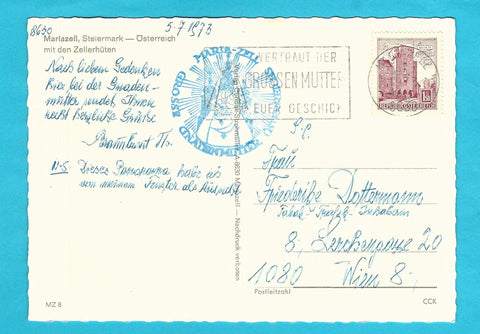 8630
5-7-1973
Mariazell, Steiermark — Österreich
mit den Zellerhüten
Nach liebem Gedenken
hier bei der Gnaden-
mutter sendet Ihnen
recht herzliche Grüße
N-S Dieses Panorama habe ich
von meinem Fenster als
GROSSE MARIA-ZELL
GNADENMUTTER
VERTRAUT DER
GROSSEN MUTTER
EUER GESCHICK
REPUBLIK ÖSTERREICH
Mariazell — Nachdruck verboten
Frau
Friederike Dottermann
Tabak-Trafik-Inhaberin
8, Lerchengasse 20
1080 Wien 8,
Postleitzahl
MZ 8
CCK